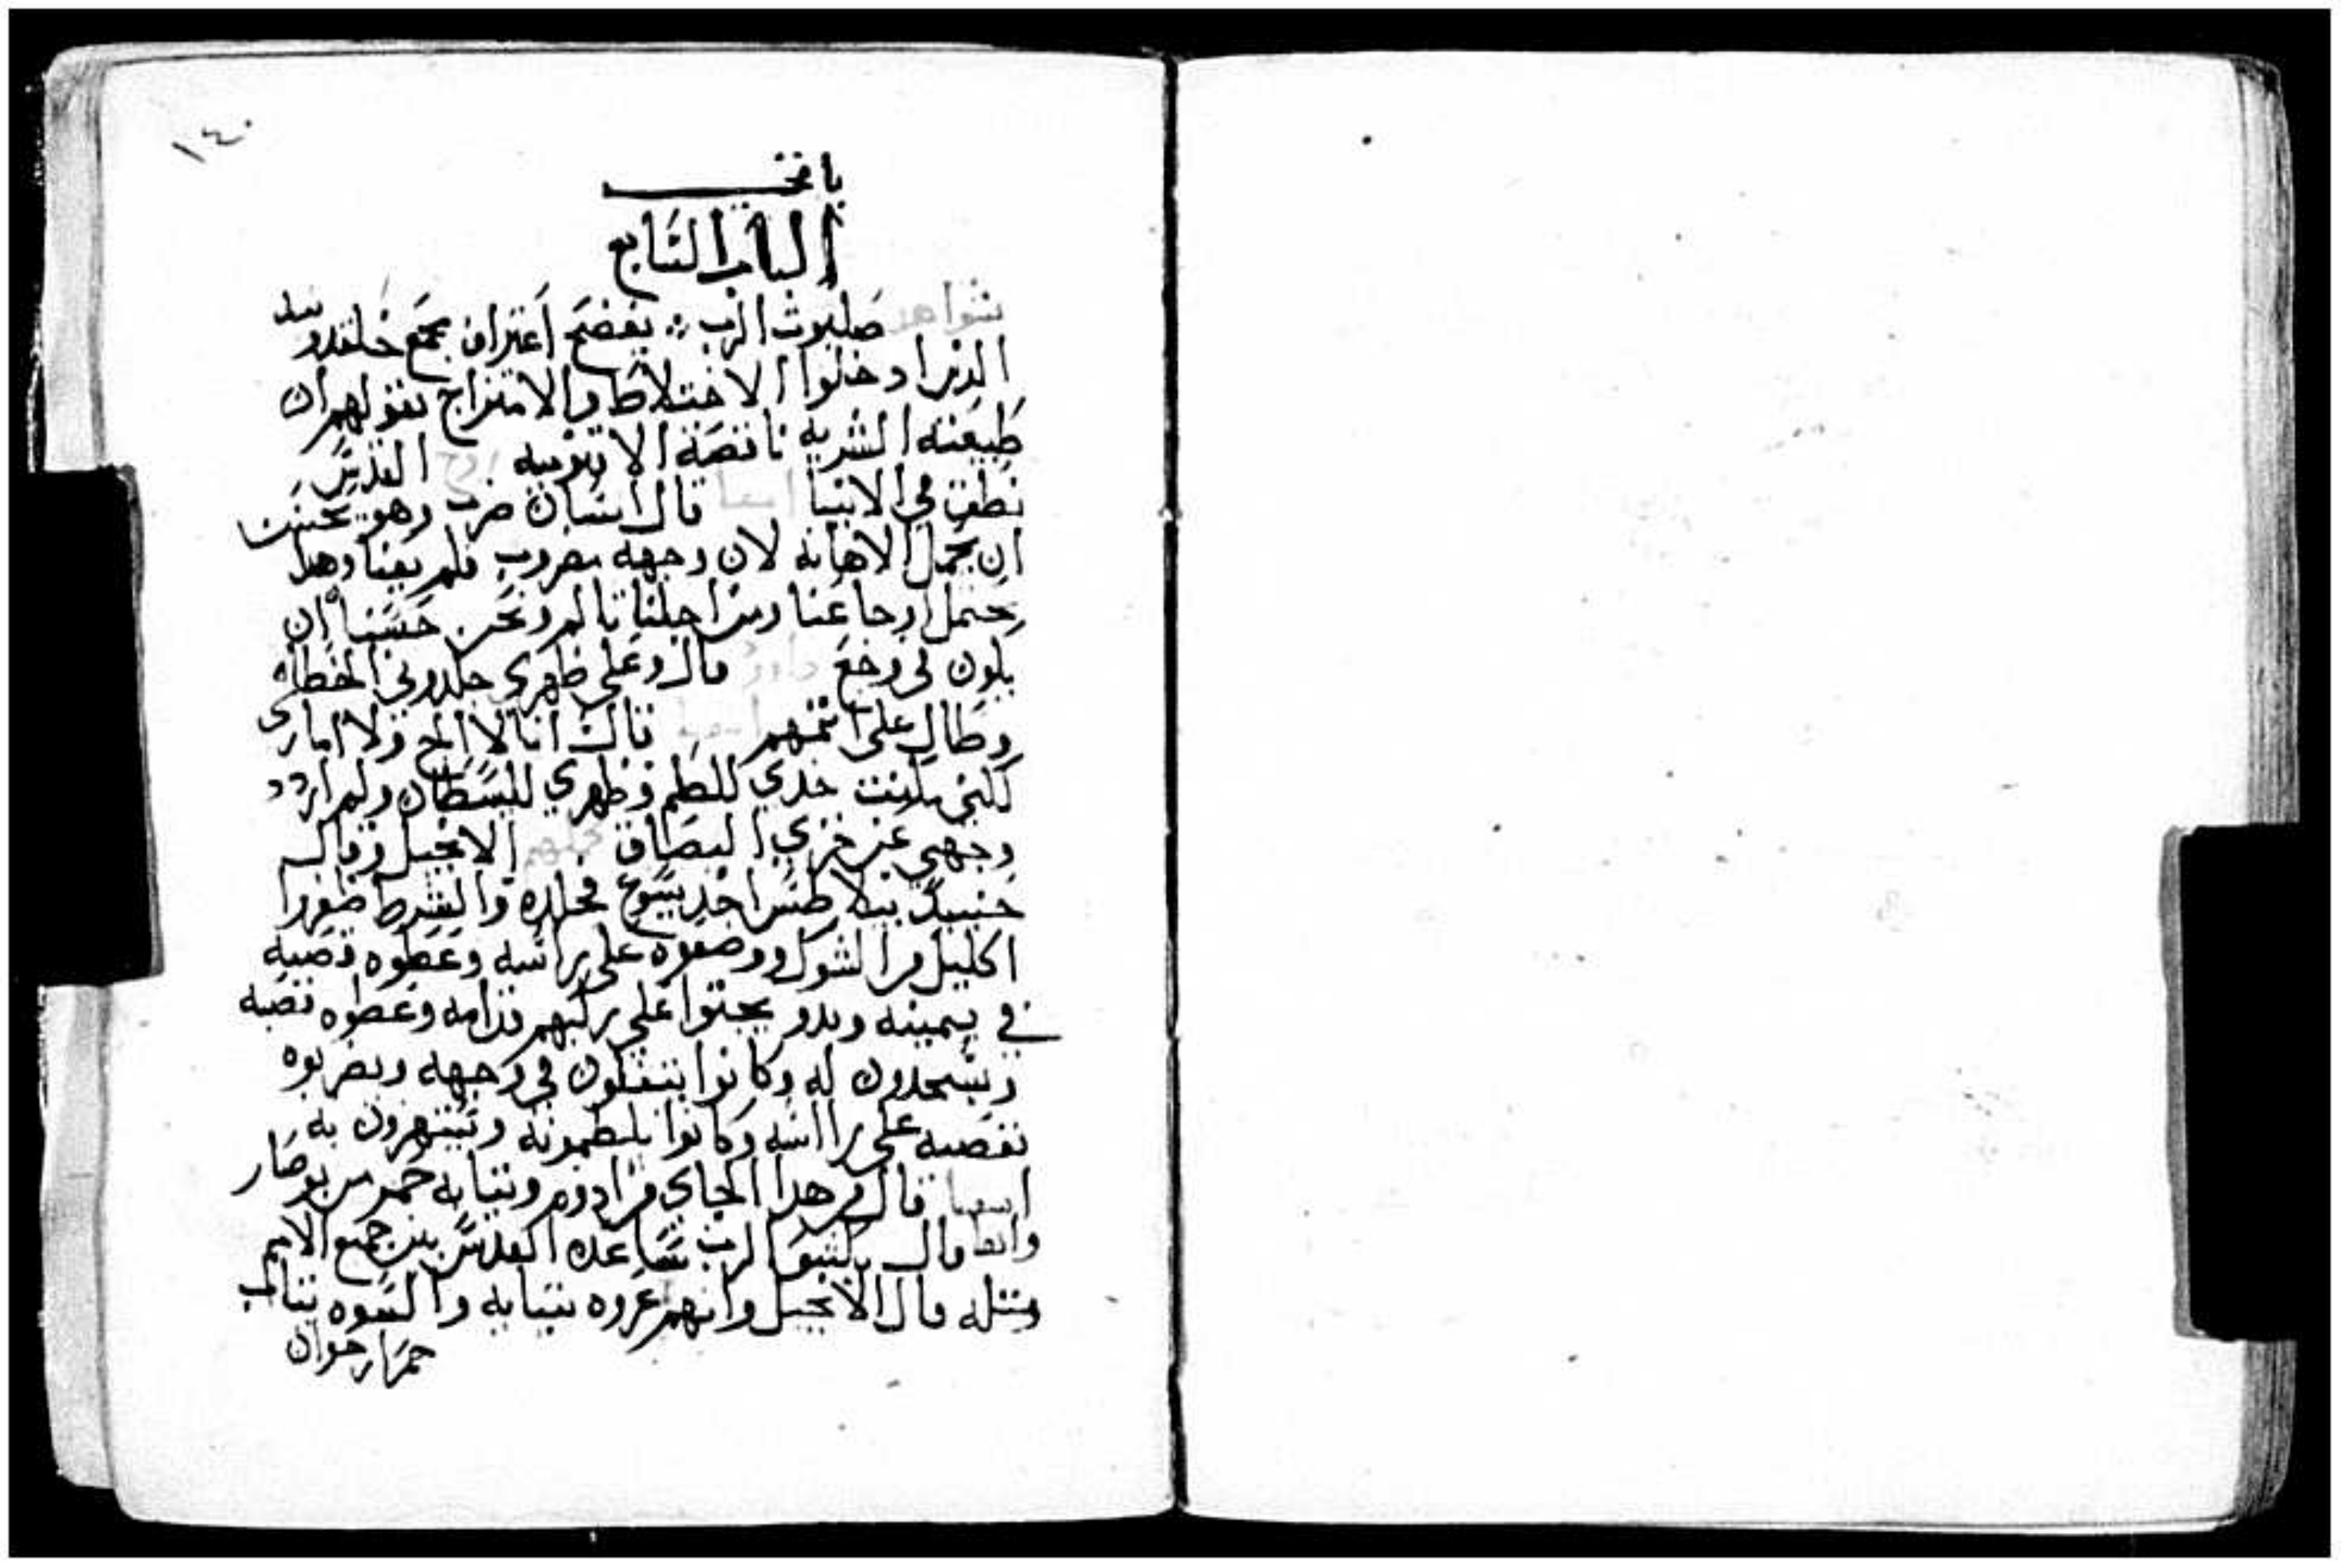 ١٤٠
الباب السابع
شواهد صلبوت الرب ؞ يفضح اعتراف مجمع خلقدونيه
الذين ادخلوا الاختلاط والامتزاج بقولهم ان
طبيعته البشريه ناقصة الاقنوميه روح القدس
نطق في الانبيا اشعيا قال انسان ضرب وهو يحسن
ان يحمل الاهانه لان وجهه مضروب فلم يعبنا وهدا
يحتمل اوجاعنا ومن اجلنا تالم ونحن حسبنا ان
يلون في وجع داوود قال وعلى ظهري جلدوني الخطاه
وطال على اثمهم اشعيا قال انا لا الج ولا اماري
لكني بدلت خدي للطم وظهري للسياط ولم اردد
وجهي عن خزي البصاق الانجيل وقال
حينيدٍ بيلاطس اخد يسوع فجلده والشرط ضفروا
اكليل من الشوك ووضعوه على راسه وعطوه قصبه
في يمينه وبدو يجثوا على ركبهم قدامه وعطوه قصبه
ويسجدون له وكانوا يتفلون في وجهه ويضربوه
بقصبه على رااسه وكانوا يلطمونه ويستهزون به
اشعيا قال من هدا الجاي من ادوم وثيابه حمر من بوصار
وايضا قال يكشف الرب ساعده القدس بين جميع الامم
ومثله قال الانجيل وانهم عروه ثيابه والبسوه ثياب
حمر ارجوان